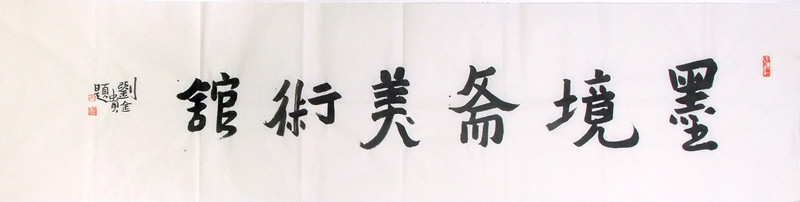 墨境斋美術舘
劉金凱題